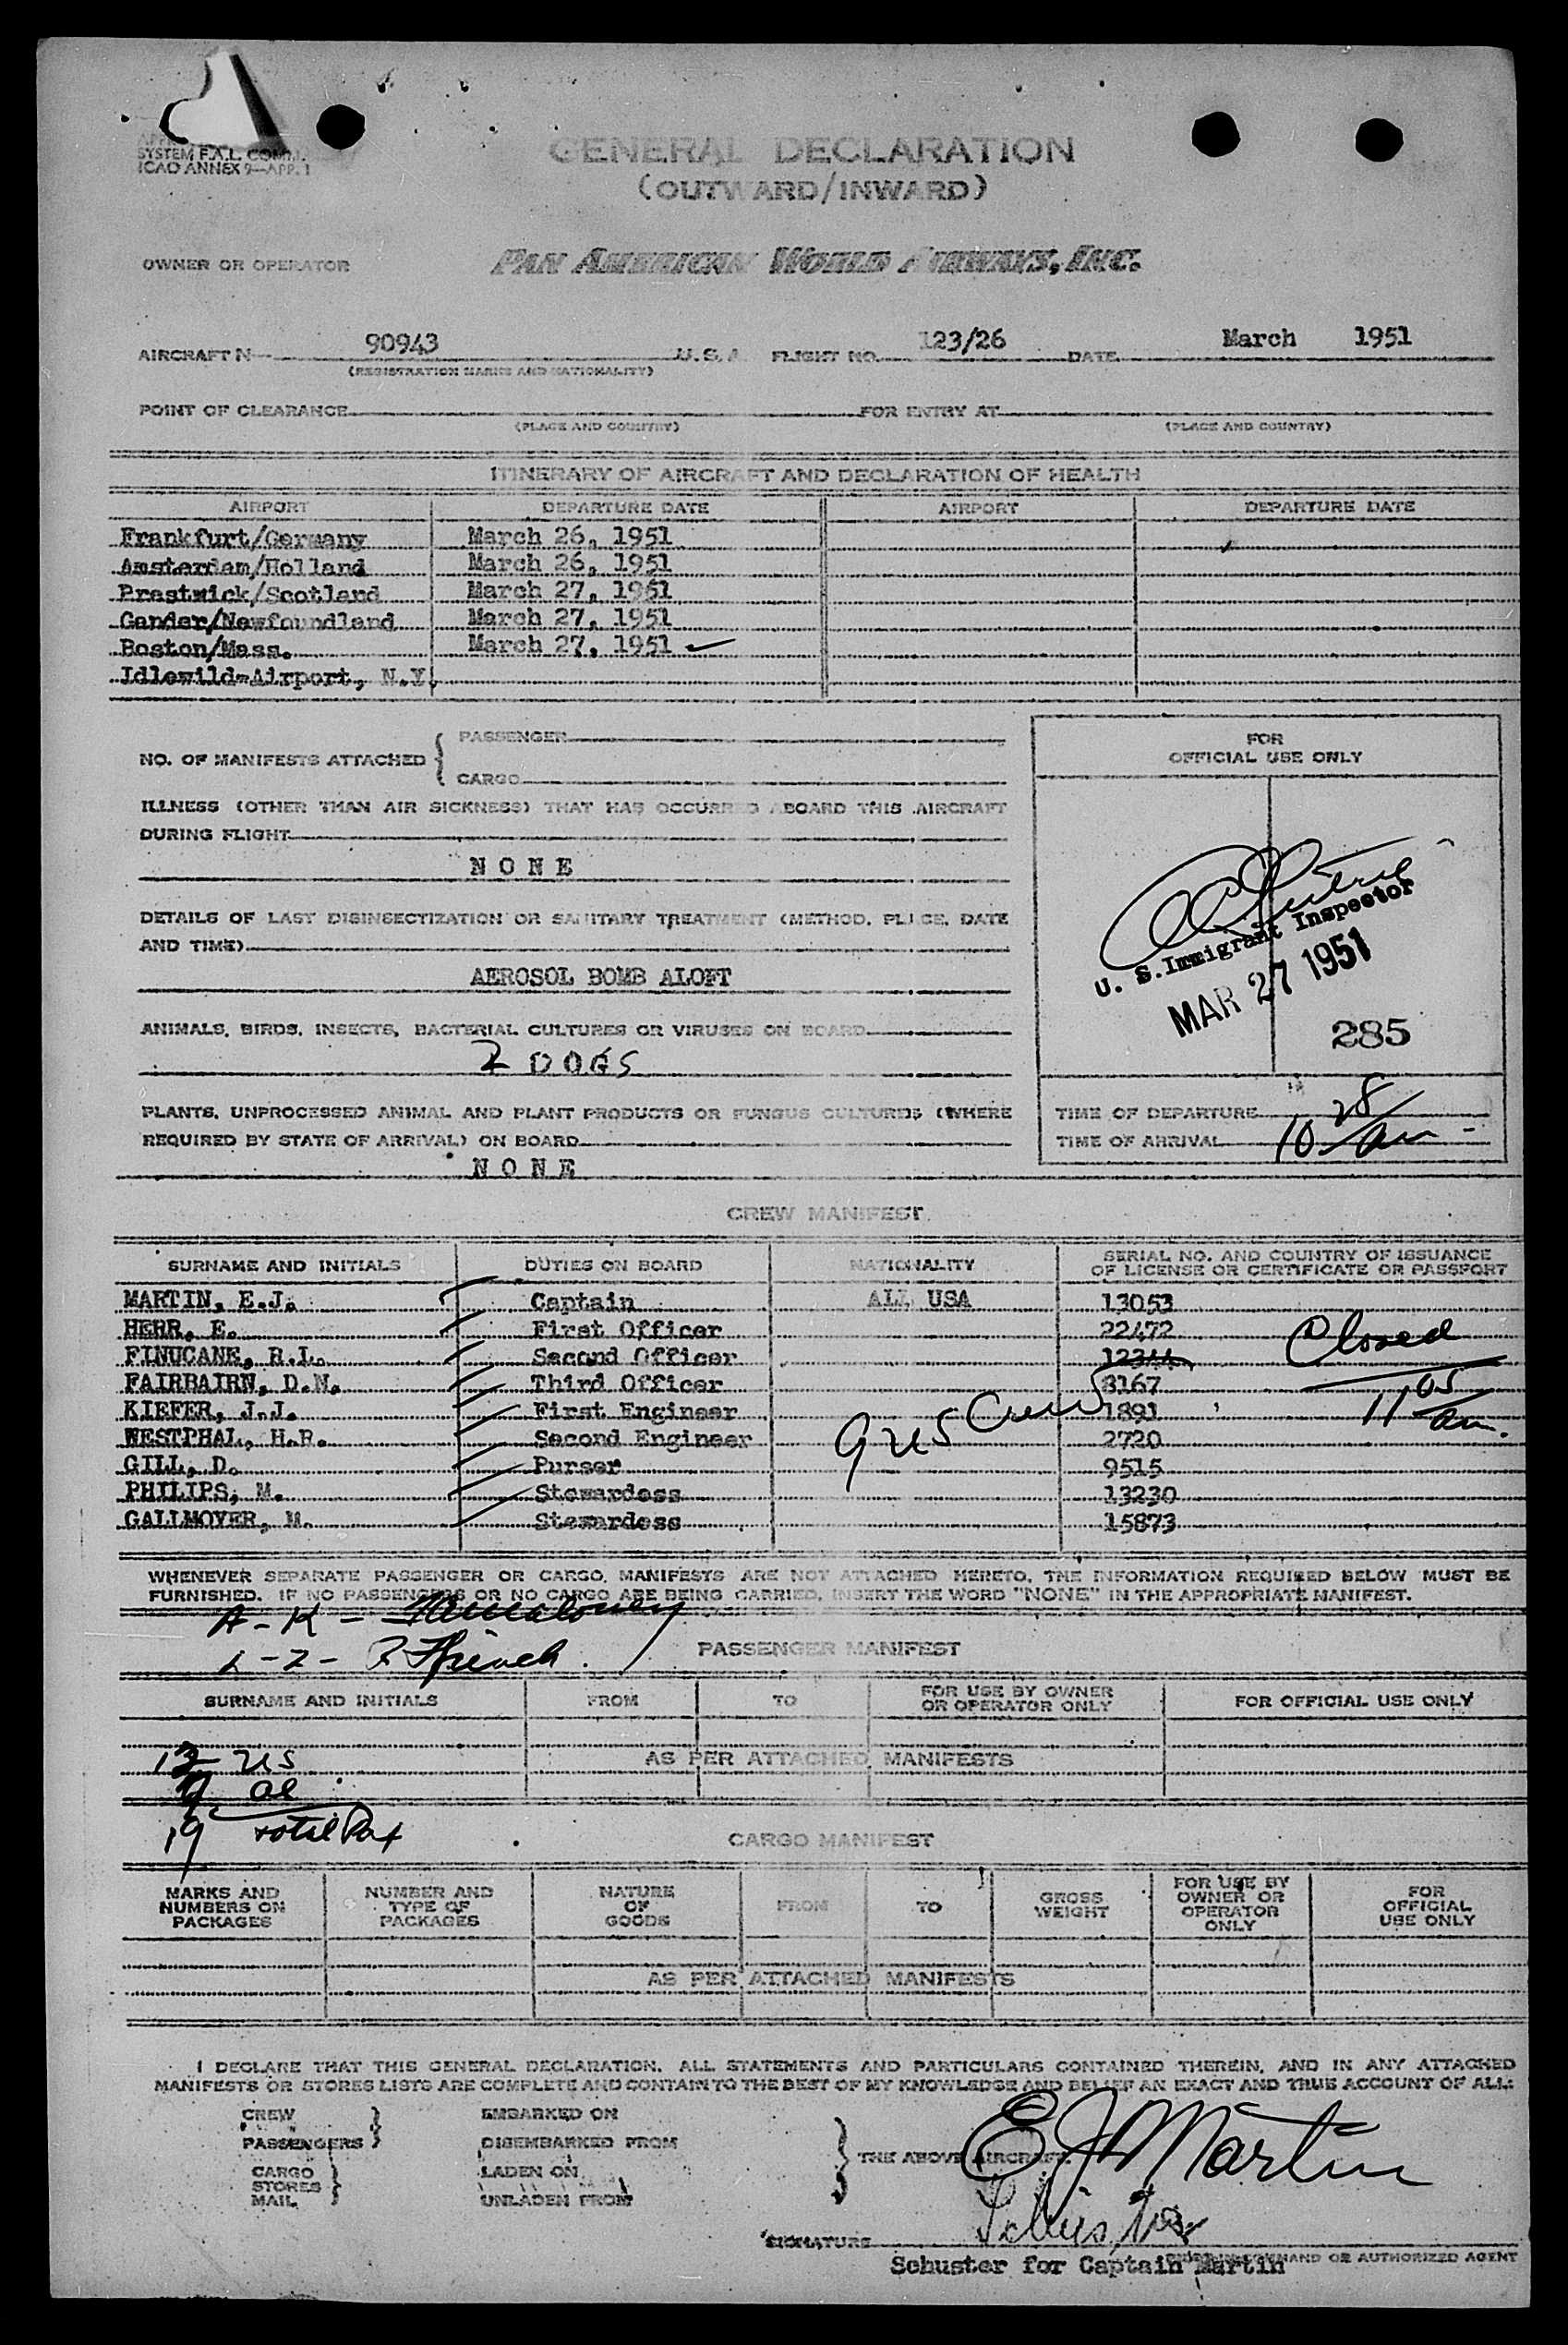 SYSTEM F.A.L. COMM.
ICAO ANNEX 9—APP. 1
GENERAL DECLARATION
(OUTWARD/INWARD)
OWNER OR OPERATOR PAN AMERICAN WORLD AIRWAYS, INC.
AIRCRAFT N 90943 U.S.A. FLIGHT NO. 123/26 DATE March 1951
(REGISTRATION MARKS AND NATIONALITY)
POINT OF CLEARANCE FOR ENTRY AT
(PLACE AND COUNTRY) (PLACE AND COUNTRY)
ITINERARY OF AIRCRAFT AND DECLARATION OF HEALTH
AIRPORT DEPARTURE DATE AIRPORT DEPARTURE DATE
Frankfurt/Germany March 26, 1951
Amsterdam/Holland March 26, 1951
Prestwick/Scotland March 27, 1951
Gander/Newfoundland March 27, 1951
Boston/Mass. March 27, 1951
Idlewild-Airport, N.Y.
NO. OF MANIFESTS ATTACHED PASSENGER
CARGO
ILLNESS (OTHER THAN AIR SICKNESS) THAT HAS OCCURRED ABOARD THIS AIRCRAFT
DURING FLIGHT
NONE
DETAILS OF LAST DISINSECTIZATION OR SANITARY TREATMENT (METHOD, PLACE, DATE
AND TIME)
AEROSOL BOMB ALOFT
ANIMALS, BIRDS, INSECTS, BACTERIAL CULTURES OR VIRUSES ON BOARD
2 DOGS
PLANTS, UNPROCESSED ANIMAL AND PLANT PRODUCTS OR FUNGUS CULTURES (WHERE
REQUIRED BY STATE OF ARRIVAL) ON BOARD
NONE
FOR
OFFICIAL USE ONLY
U. S. Immigrant Inspector
MAR 27 1951
285
TIME OF DEPARTURE
TIME OF ARRIVAL 10 28 am
CREW MANIFEST
SURNAME AND INITIALS DUTIES ON BOARD NATIONALITY SERIAL NO. AND COUNTRY OF ISSUANCE
OF LICENSE OR CERTIFICATE OR PASSPORT
MARTIN, E.J. Captain ALL USA 13053
HERR, E. First Officer 22472
FINUCANE, R.L. Second Officer 12344
FAIRBAIRN, D.N. Third Officer 8167
KIEFER, J.J. First Engineer 1891
WESTPHAL, H.R. Second Engineer 2720
GILL, D. Purser 9515
PHILIPS, M. Stewardess 13230
GALLMOYER, M. Stewardess 15873
9 US Crew
Closed
11 05 am.
WHENEVER SEPARATE PASSENGER OR CARGO MANIFESTS ARE NOT ATTACHED HERETO, THE INFORMATION REQUIRED BELOW MUST BE
FURNISHED. IF NO PASSENGERS OR NO CARGO ARE BEING CARRIED, INSERT THE WORD "NONE" IN THE APPROPRIATE MANIFEST.
A-K-
L-Z-
PASSENGER MANIFEST
SURNAME AND INITIALS FROM TO FOR USE BY OWNER
OR OPERATOR ONLY FOR OFFICIAL USE ONLY
AS PER ATTACHED MANIFESTS
US
al
19 total Pax
CARGO MANIFEST
MARKS AND
NUMBERS ON
PACKAGES NUMBER AND
TYPE OF
PACKAGES NATURE
OF
GOODS FROM TO GROSS
WEIGHT FOR USE BY
OWNER OR
OPERATOR
ONLY FOR
OFFICIAL
USE ONLY
AS PER ATTACHED MANIFESTS
I DECLARE THAT THIS GENERAL DECLARATION, ALL STATEMENTS AND PARTICULARS CONTAINED THEREIN, AND IN ANY ATTACHED
MANIFESTS OR STORES LISTS ARE COMPLETE AND CONTAIN TO THE BEST OF MY KNOWLEDGE AND BELIEF AN EXACT AND TRUE ACCOUNT OF ALL:
CREW EMBARKED ON
PASSENGERS DISEMBARKED FROM
CARGO LADEN ON THE ABOVE AIRCRAFT.
STORES
MAIL UNLADEN FROM
E J Martin
SIGNATURE
Schuster for Captain Martin COMMAND OR AUTHORIZED AGENT